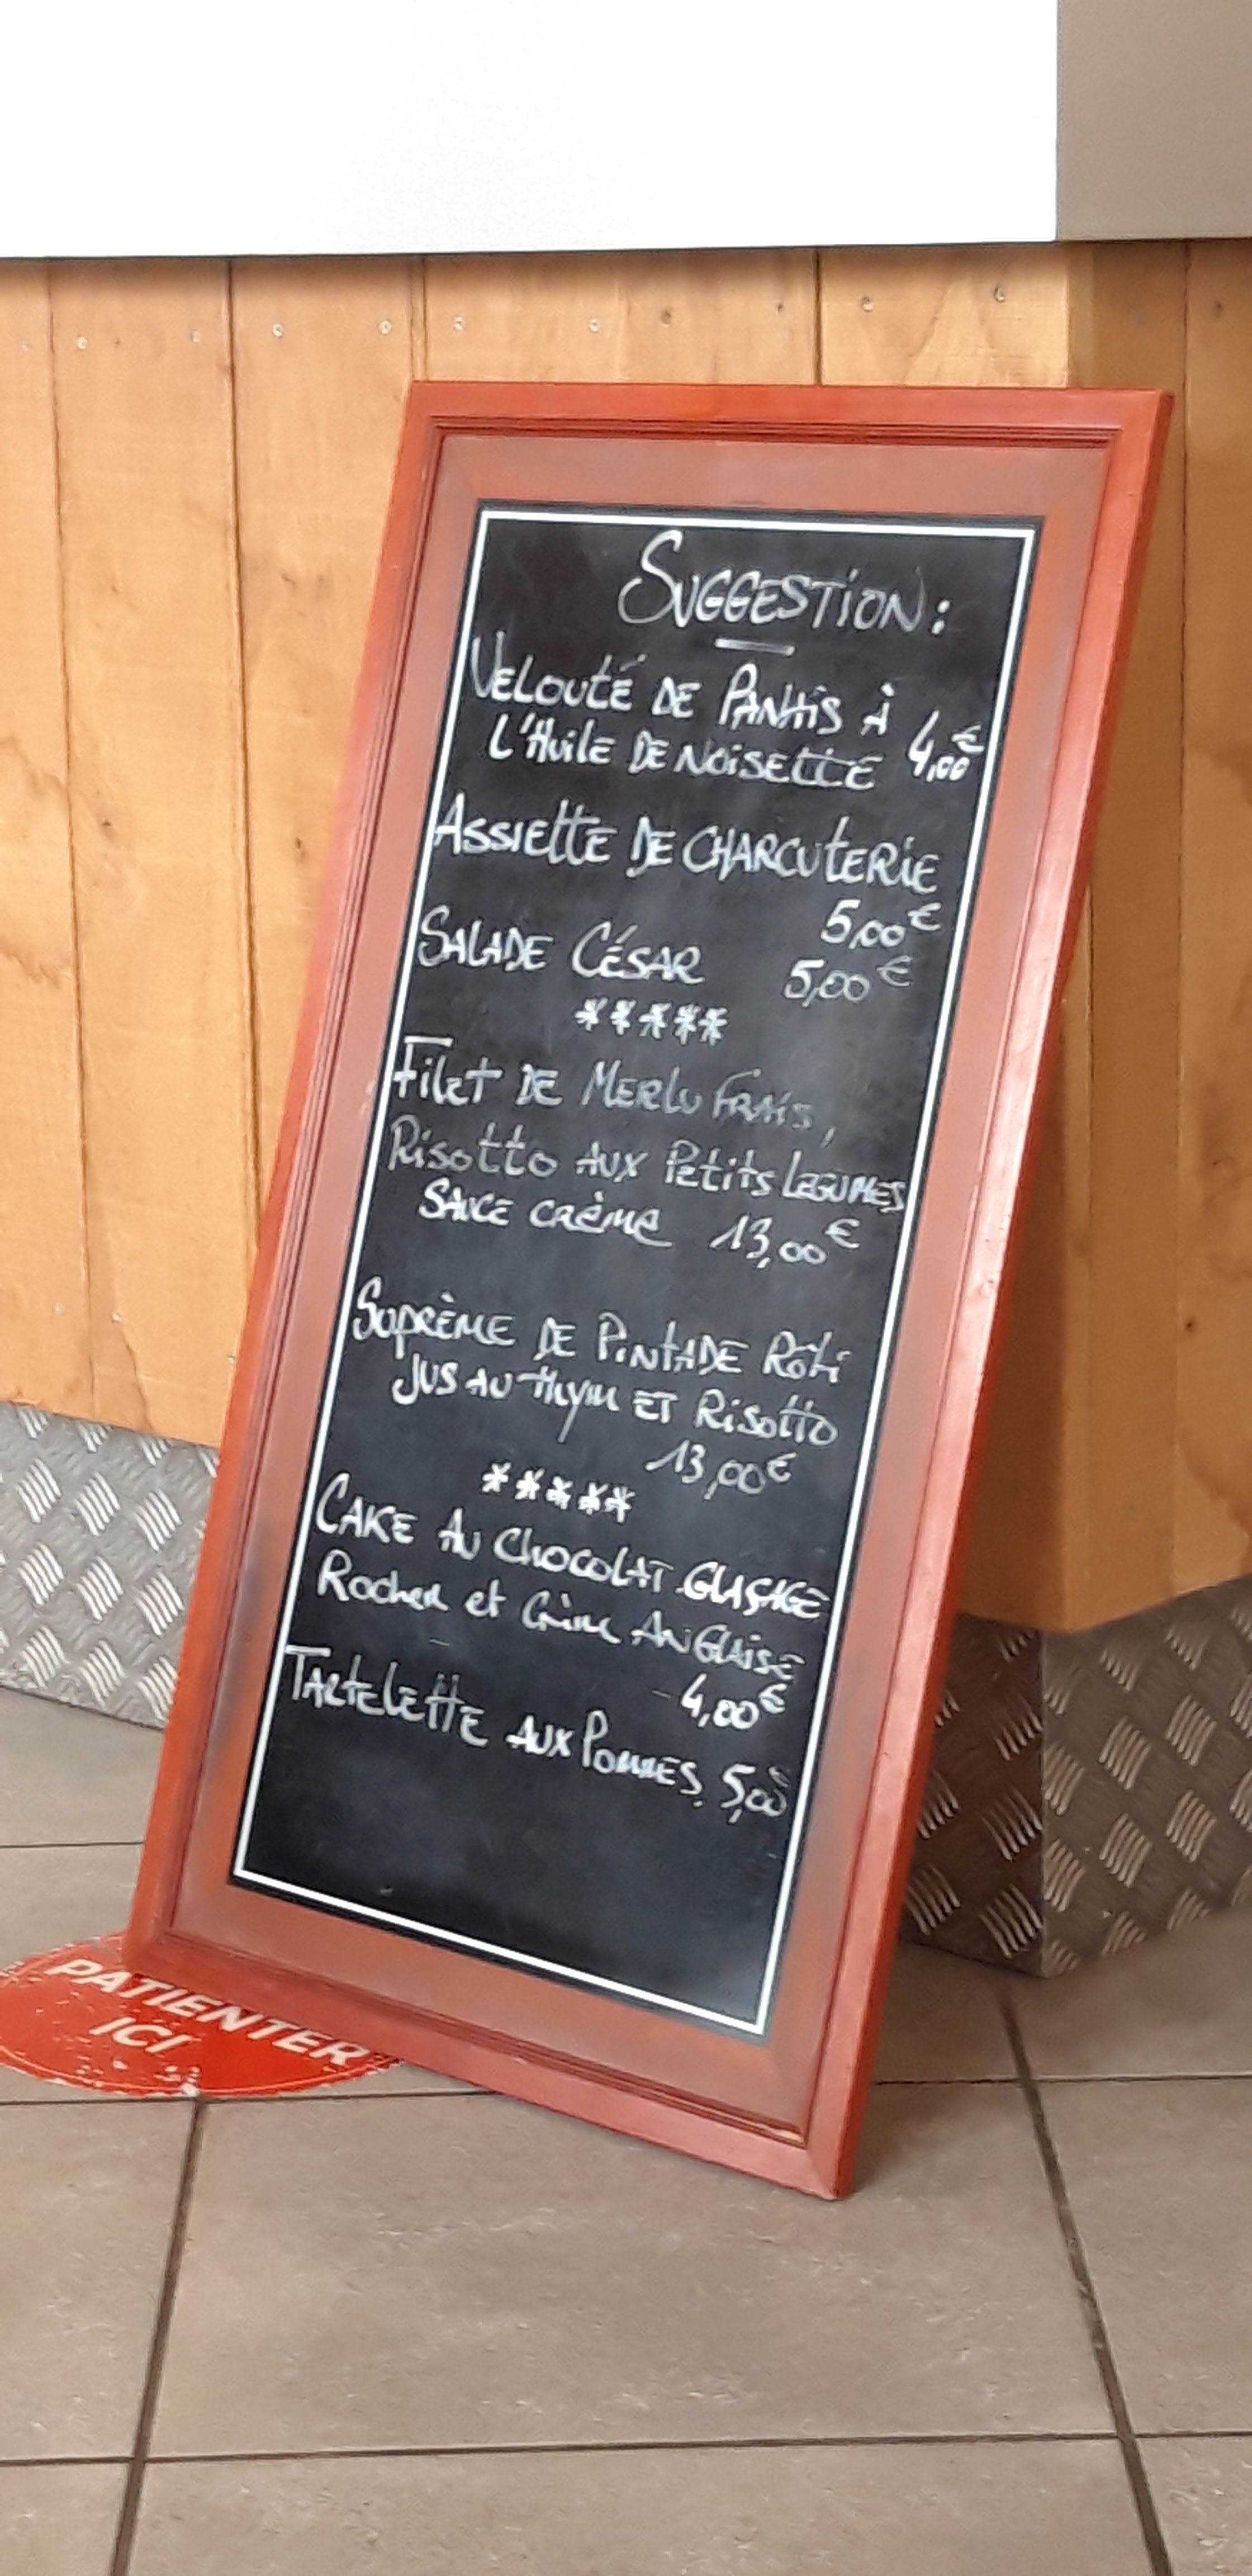 SUGGESTION:
VELOUTÉ DE PANAIS À
L'HUILE DE NOISETTE 4,00€
ASSIETTE DE CHARCUTERIE
5,00€
SALADE CÉSAR 5,00€
*****
FILET DE MERLU FRAIS,
RISOTTO AUX PETITS LEGUMES
SAUCE CRÈME 13,00€
SUPRÈME DE PINTADE RÔTI
JUS AU THYM ET RISOTTO
13,00€
*****
CAKE AU CHOCOLAT GLAÇAGE
ROCHER et CRÈME ANGLAISE
4,00€
TARTELETTE AUX POMMES. 5,00€
PATIENTER
ICI